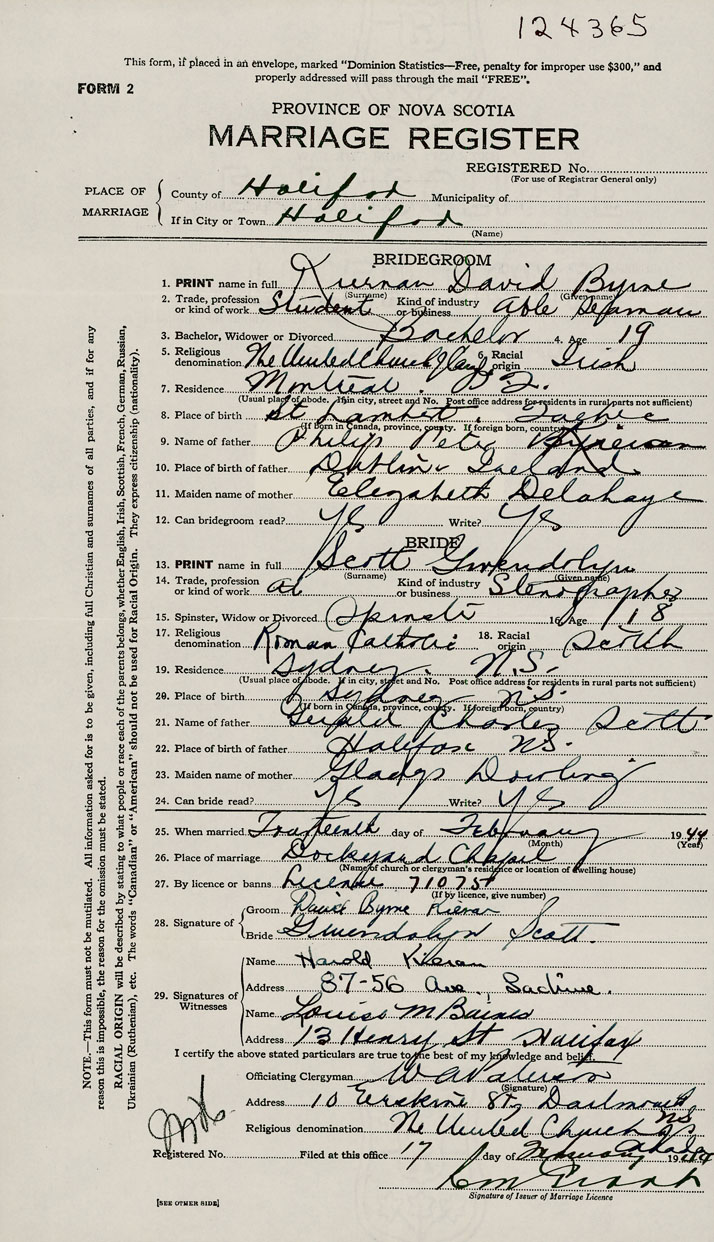 124365
This form, if placed in an envelope, marked "Dominion Statistics—Free, penalty for improper use $300," and
properly addressed will pass through the mail "FREE".
FORM 2
PROVINCE OF NOVA SCOTIA
MARRIAGE REGISTER
REGISTERED No.
(For use of Registrar General only)
PLACE OF MARRIAGE
County of Halifax Municipality of
If in City or Town Halifax
(Name)
BRIDEGROOM
1. PRINT name in full Kiernan David Byrne
(Surname) (Given name)
2. Trade, profession or kind of work Student Kind of industry or business Able Seaman
3. Bachelor, Widower or Divorced Bachelor 4. Age 19
5. Religious denomination The United Church of 6. Racial origin Irish
7. Residence Montreal P.Q.
(Usual place of abode. If in city, street and No. Post office address for residents in rural parts not sufficient)
8. Place of birth St Lambert, Quebec
(If born in Canada, province, county. If foreign born, country)
9. Name of father Philip Peter
10. Place of birth of father Dublin Ireland
11. Maiden name of mother Elezabeth Delahaye
12. Can bridegroom read? Yes Write? Yes
BRIDE
13. PRINT name in full Scott Gwendolyn
(Surname) (Given name)
14. Trade, profession or kind of work at Kind of industry or business Stenographer
15. Spinster, Widow or Divorced Spinster 16. Age 18
17. Religious denomination Roman Catholic 18. Racial origin Scotch
19. Residence Sydney. N.S.
(Usual place of abode. If in city, street and No. Post office address for residents in rural parts not sufficient)
20. Place of birth Sydney N.S.
(If born in Canada, province, county. If foreign born, country)
21. Name of father Gerald Charles Scott
22. Place of birth of father Halifax NS.
23. Maiden name of mother Gladys Dowling
24. Can bride read? Yes Write? Yes
25. When married Fourteenth day of February 1944
(Month) (Year)
26. Place of marriage Dockyard Chapel
(Name of church or clergyman's residence or location of dwelling house)
27. By licence or banns Licence 71075
(If by licence, give number)
28. Signature of
Groom David Byrne Kieran
Bride Gwendolyn Scott.
29. Signatures of Witnesses
Name Harold Kieran
Address 87-56 Ave., Lachine.
Name Louise M Baines
Address 13 Henry St Halifax
I certify the above stated particulars are true to the best of my knowledge and belief.
Officiating Clergyman
(Signature)
Address 10 Erskine St, Dartmouth NS
Religious denomination The United Church of Canada
Registered No. Filed at this office 17 day of 1944
Signature of Issuer of Marriage Licence
[SEE OTHER SIDE]
NOTE.—This form must not be mutilated. All information asked for is to be given, including full Christian and surnames of all parties, and if for any
reason this is impossible, the reason for the omission must be stated.
RACIAL ORIGIN will be described by stating to what people or race each of the parents belongs, whether English, Irish, Scottish, French, German, Russian,
Ukrainian (Ruthenian), etc. The words "Canadian" or "American" should not be used for Racial Origin. They express citizenship (nationality).